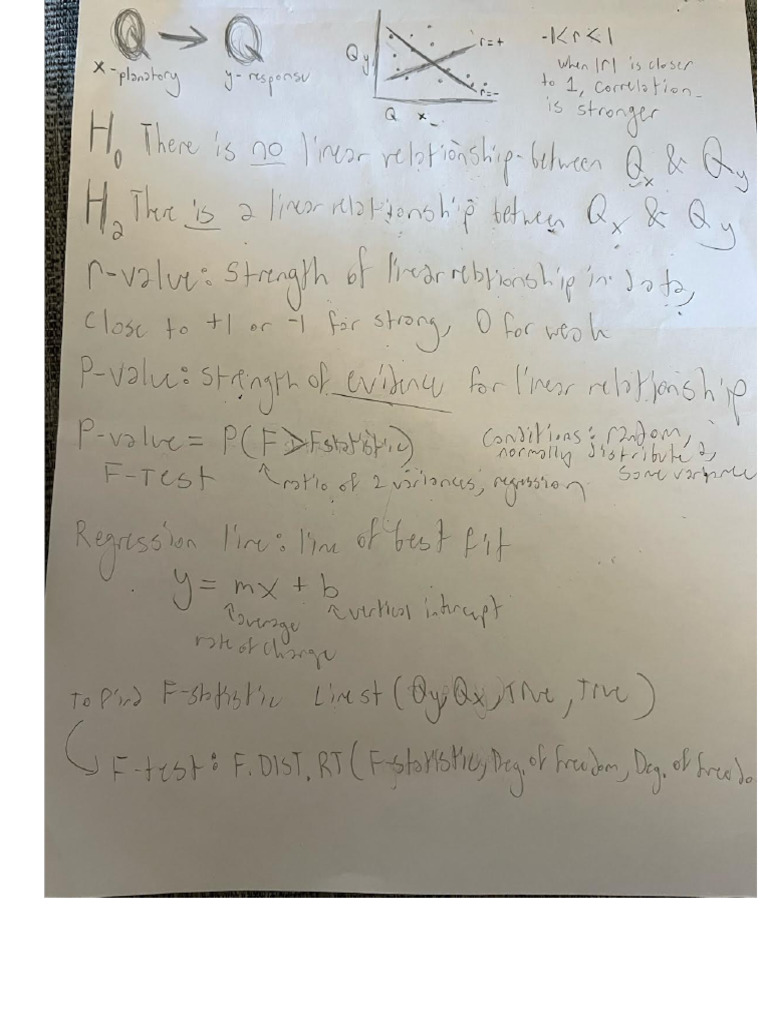 Q → Q
x-planatory y-response
Qy
r=+
r=-
Q x
-1<r<1
when |r| is closer
to 1, correlation
is stronger
H0 There is no linear relationship between Qx & Qy
Ha There is a linear relationship between Qx & Qy
r-value: Strength of linear relationship in data,
close to +1 or -1 for strong, 0 for weak
P-value: strength of evidence for linear relationship
P-value = P(F > Fstatistic)
F-Test ↑ ratio of 2 variances, regression
conditions: random,
normally distributed,
same variance
Regression line: line of best fit
y = mx + b
↑ average
rate of change
↑ vertical intercept
To find F-statistic Linest (Qy, Qx, True, True)
F-test: F.DIST.RT (F-statistic, Deg. of freedom, Deg. of freedo